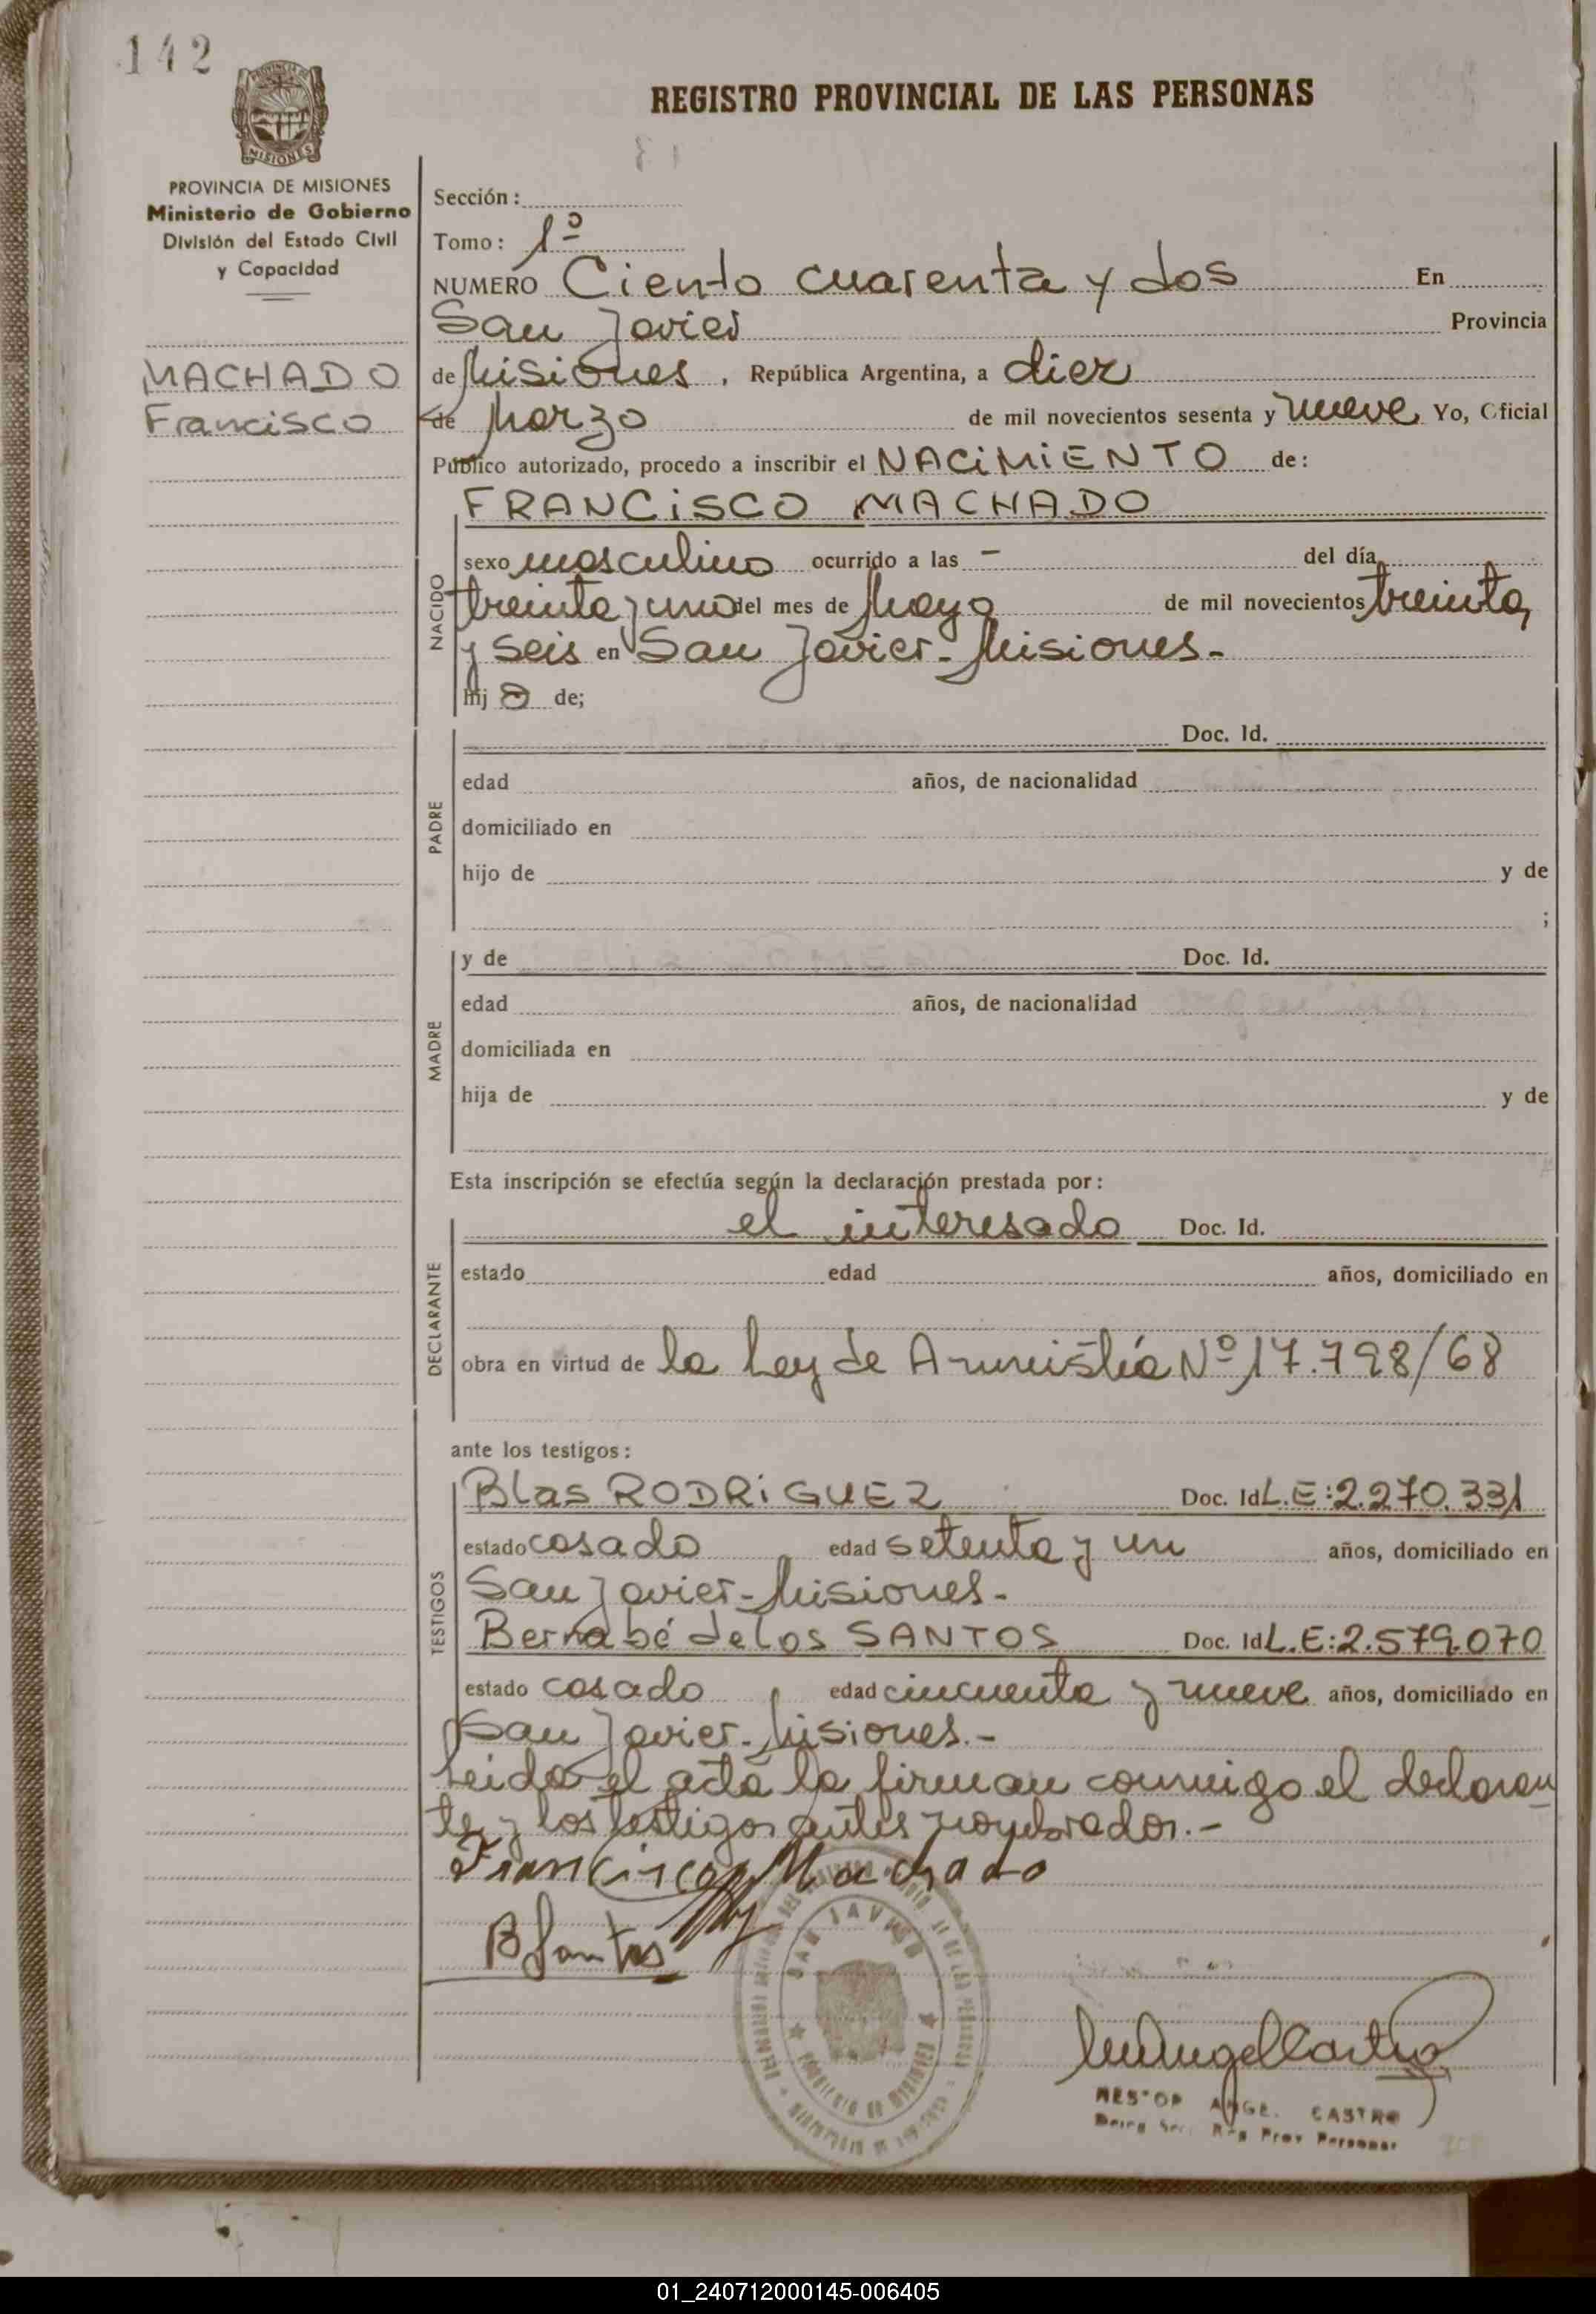 142
REGISTRO PROVINCIAL DE LAS PERSONAS
MISIONES
PROVINCIA DE MISIONES
Ministerio de Gobierno
División del Estado Civil
y Capacidad
MACHADO
Francisco
Sección:
Tomo: 1º
NUMERO Ciento cuarenta y dos En
San Javier Provincia
de Misiones, República Argentina, a diez
de Marzo de mil novecientos sesenta y nueve Yo, Oficial
Público autorizado, procedo a inscribir el NACiMiENTO de:
NACIDO
FRANCiSCO MACHADO
sexo masculino ocurrido a las - del día
treinta y uno del mes de Mayo de mil novecientos treinta
y seis en San Javier - Misiones.-
hij o de;
PADRE
Doc. Id.
edad años, de nacionalidad
domiciliado en
hijo de y de
;
MADRE
y de Doc. Id.
edad años, de nacionalidad
domiciliada en
hija de y de
Esta inscripción se efectúa según la declaración prestada por:
DECLARANTE
el interesado Doc. Id.
estado edad años, domiciliado en
obra en virtud de la Ley de Amnistía Nº 17.798/68
ante los testigos:
TESTIGOS
Blas RODRiGUEZ Doc. Id L.E:2.270.331
estado casado edad setenta y un años, domiciliado en
San Javier - Misiones.-
Bernabé de los SANTOS Doc. Id L.E:2.579.070
estado casado, edad cincuenta y nueve años, domiciliado en
San Javier - Misiones.-
Leida el acta la firman conmigo el declaran
te y los testigos antes nombrados.-
Francisco Machado
B Santos
SAN JAVIER
NESTOR ANGEL CASTRO
Reg Prov Personas
01_240712000145-006405